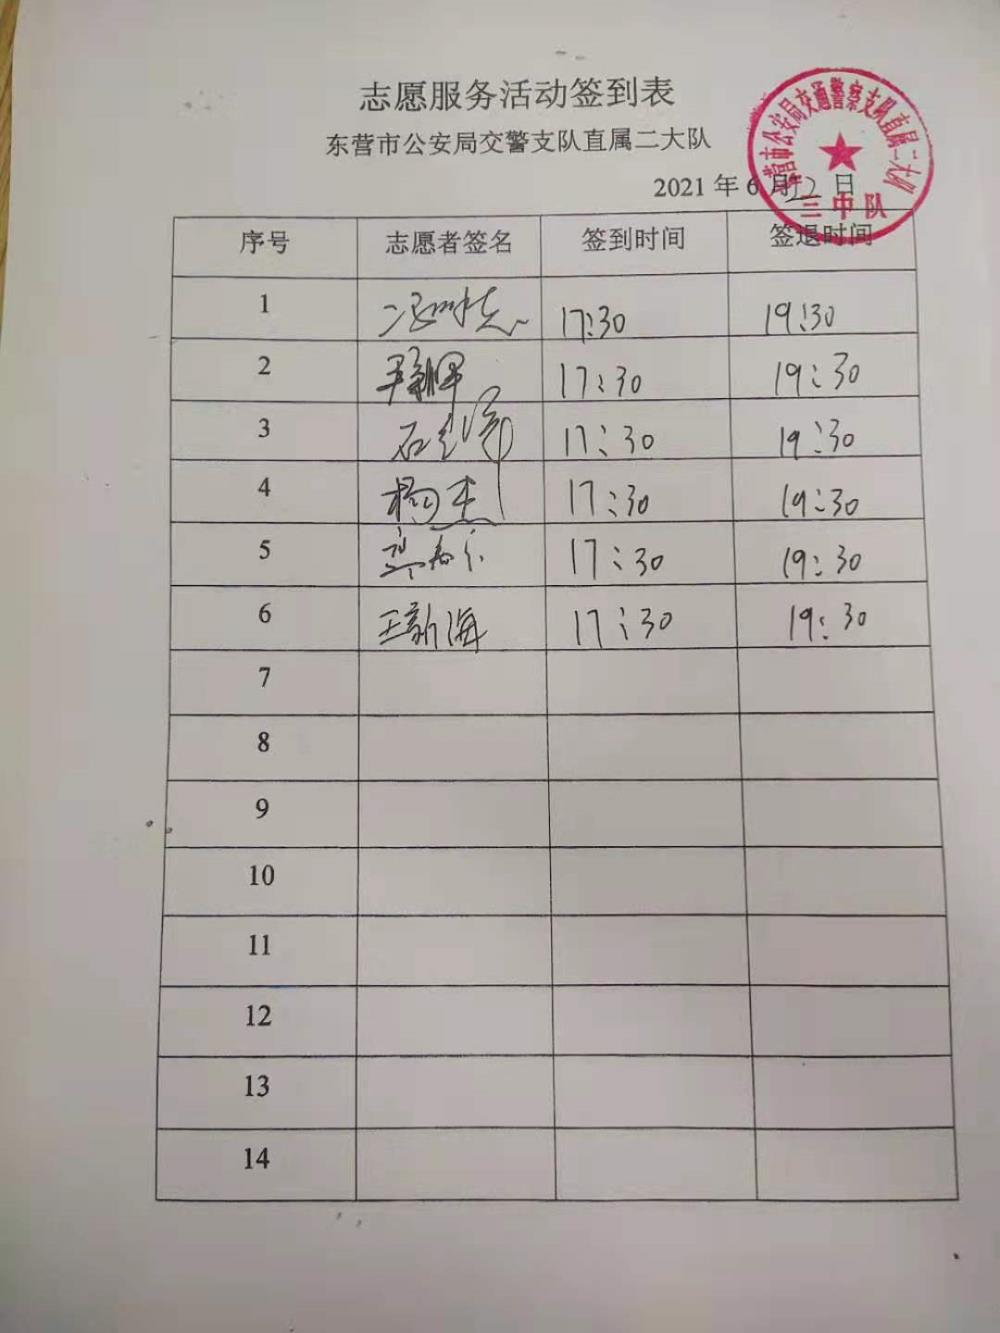 志愿服务活动签到表
东营市公安局交警支队直属二大队
2021 年 6 月 12 日
东营市公安局交通警察支队直属二大队
三中队
序号 志愿者签名 签到时间 签退时间
1 17:30 19:30
2 17:30 19:30
3 石 17:30 19:30
4 杨杰 17:30 19:30
5 17:30 19:30
6 王新海 17:30 19:30
7
8
9
10
11
12
13
14